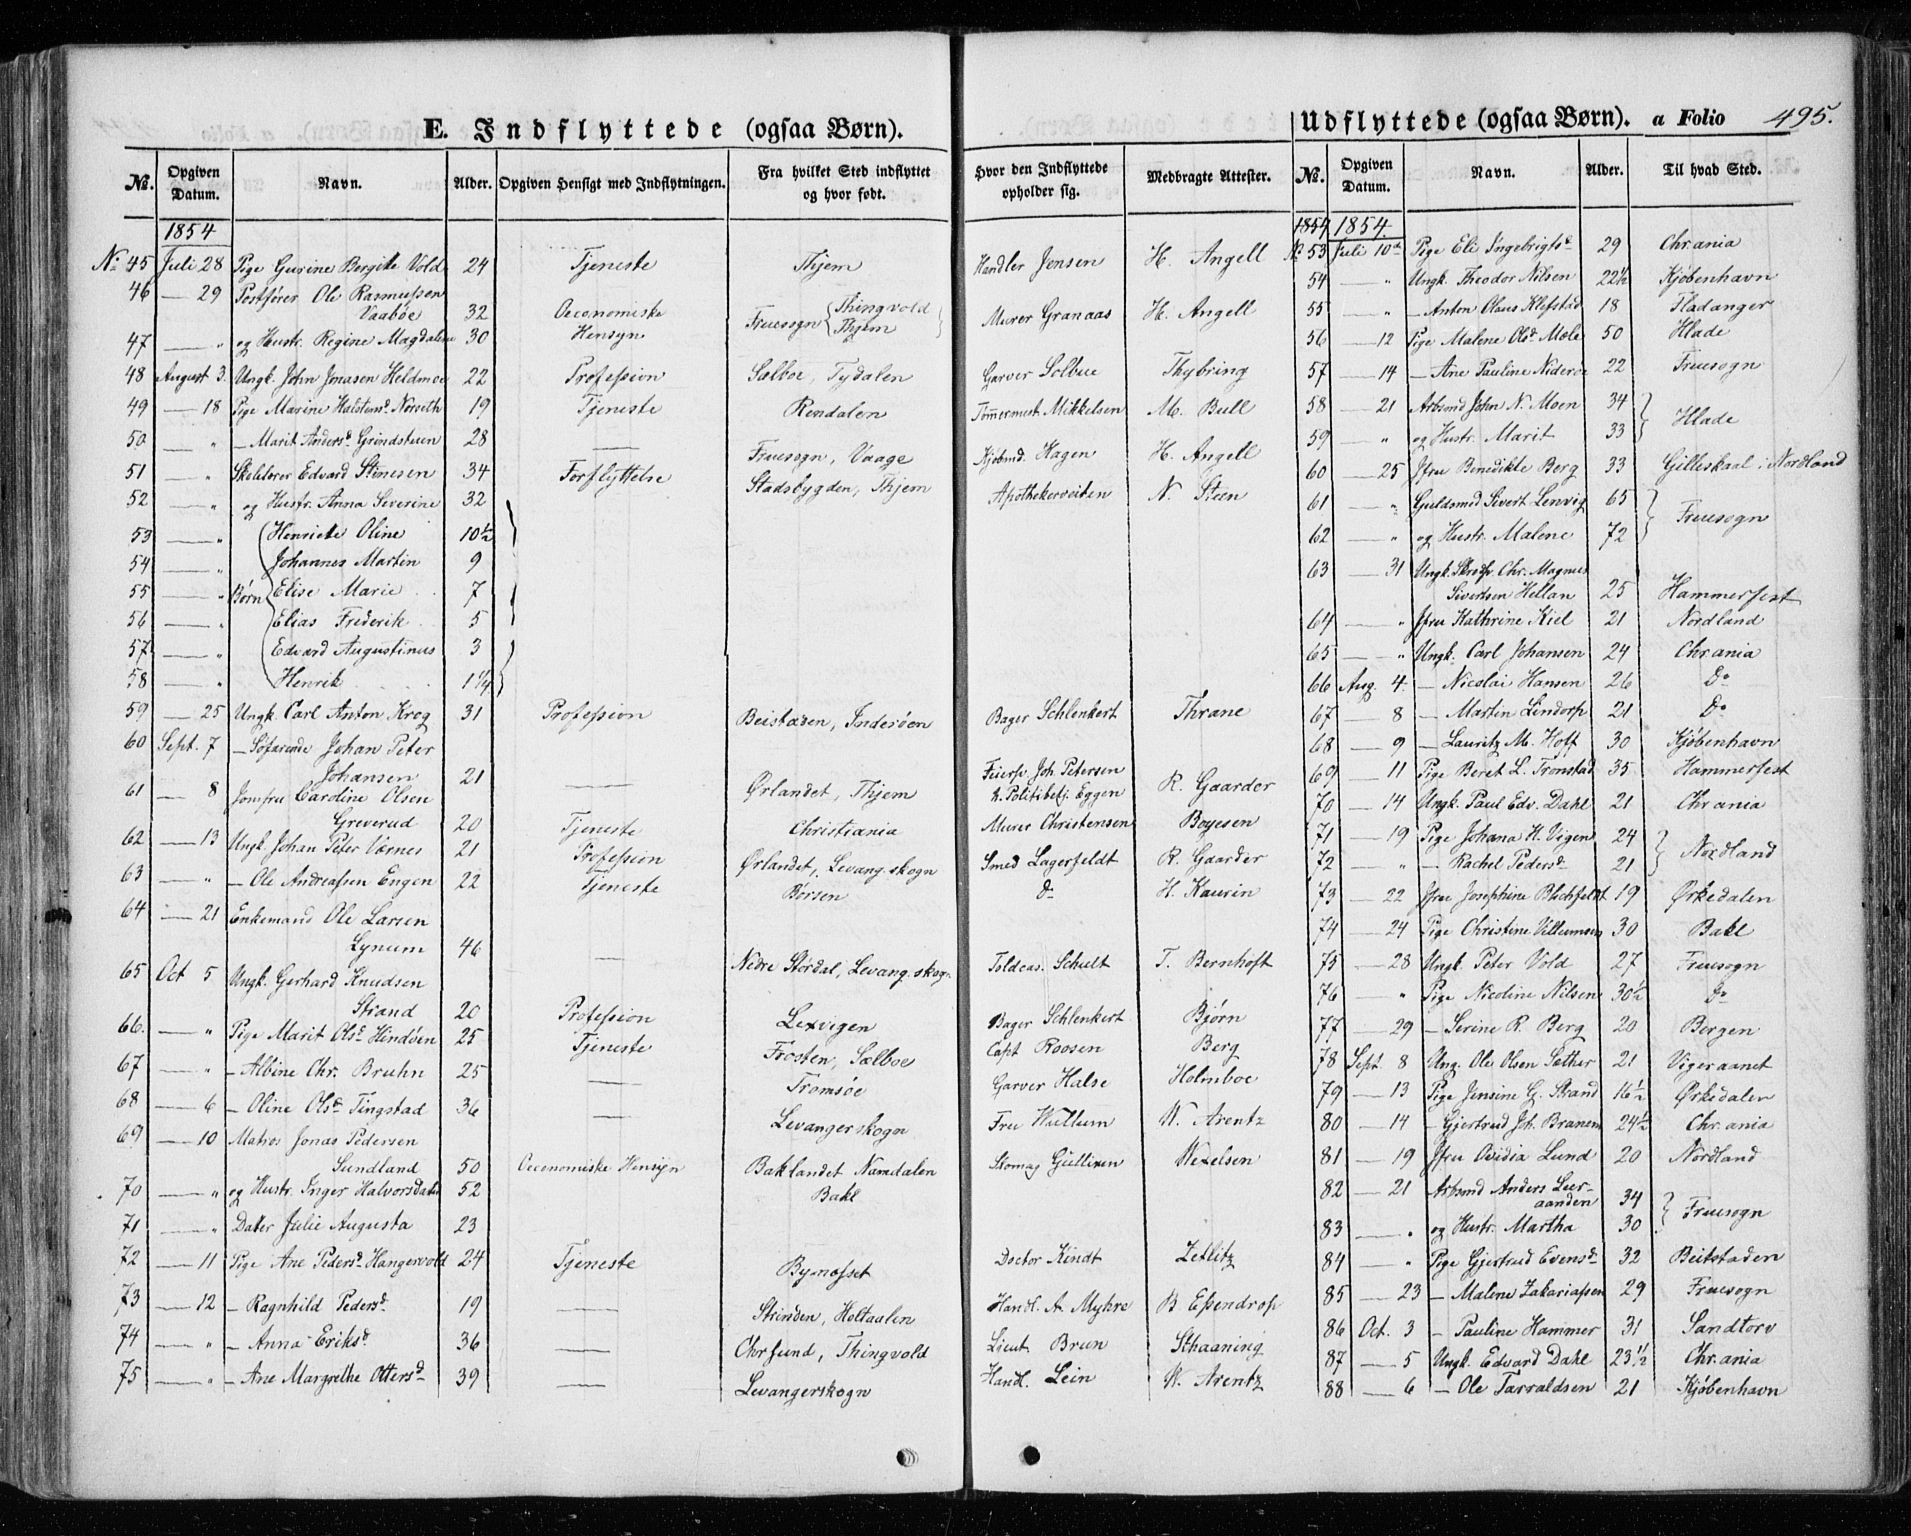 E. Indflyttede (ogsaa Børn).
No. Opgiven Datum. Navn. Alder. Opgiven Hensigt med Indflytningen. Fra hvilket Sted indflyttet og hvor født. Hvor den Indflyttede opholder sig. Medbragte Attester.
1854
No 45 Juli 28 Pige Gurine Bergitte Vold 24 Tjeneste Thjem Handler Jensen H. Angell
46 — 29 Postfører Ole Rasmussen
Vaabøe 32 Oeconomiske Fruesogn { Thingvold Murer Granaas H. Angell
47 — " og Hustr. Regine Magdalene 30 Hensyn Thjem }
48 August 3. Ungk. John Jonasen Heldmoe 22 Profession Sælboe, Tydalen Garver Solbue Thybring
49 — 18 Pige Marine Halstensd. Norseth 19 Tjeneste Rendalen Tømermest. Mikkelsen M. Bull
50 — " — Marit Andersd. Grindstuen 28 — Fruesogn, Vaage Kjøbmd. Hagen H. Angell
51 — " Skolelærer Edvard Stinesen 34 Forflyttelse Stadsbygden, Thjem Apothekerveiten N. Steen
52 — " og Hustr. Anna Severine 32
53 — " Henriette Oline 10½
54 — " Johannes Martin 9
55 — " Børn Elise Marie 7
56 — " Elias Frederik 5
57 — " Edvard Augustinus 3
58 — " Henrik 1¼
59 — 25 Ungk. Carl Anton Krog 31 Profession Beistaden, Inderøen Bager Schlenkert Thrane
60 Sept. 7 — Søfarende Johan Peter
Johansen 21 — Ørlandet, Thjem Feiersv. Joh. Petersen R. Gaarder
61 — 8 Jomfru Caroline Olsen h. Politibetj. Eggen
Greverud 20 Tjeneste Christiania Murer Christensen Boyesen
62 — 13 Ungk. Johan Peter Værnes 21 Profession Ørlandet, Levang. skogn Smed Lagerfeldt R. Gaarder
63 — " — Ole Andreassen Engen 22 Tjeneste Børsen Do H. Kaurin
64 — 21 Enkemand Ole Larsen
Lynum 46 — Nedre Stordal, Levang. skogn Toldcas. Schult T. Bernhoft
65 Oct 5 Ungk. Gerhard Knudsen
Strand 20 Profession Lexvigen Bager Schlenkert Bjørn
66. — " Pige Marit Olsd. Hindøen 25 Tjeneste Frosten, Sælboe Capt Roosen Berg
67 — " — Albine Chr. Bruhn 25 — Tromsøe Garver Halse Holmboe
68 — 6 — Oline Olsd. Tingstad 36 — Levangerskogn Fru Wullum W. Arentz
69 — 10 Matros Jonas Pedersen
Sundland 50 Oeconomiske Hensyn Baklandet Namdalen Skomag Gullixen Wexelsen
70 — " og Hustr. Inger Halvorsdatter 52 Bakl
71 — " Datter Julie Augusta 23
72 — 11 Pige Ane Pedersd. Hangervold 24 Tjeneste Bynæsset Doctor Kindt Zetlitz
73 — 12 — Ragnhild Pedersd. 19 — Strinden, Holtaalen Handl. A. Myhre B. Essendrop
74 — " — Anna Eriksd. 36 — Chrsund, Thingvold Lieut. Brun Sthaaning
75 — " — Ane Margrethe Ottersd. 39 — Levangerskogn Handl. Lein W. Arentz
Udflyttede (ogsaa Børn). a Folio 495.
No. Opgiven Datum. Navn. Alder. Til hvad Sted.
1854 1854.
No 53 Juli 10de Pige Eli Ingebrigtsd. 29 Chrania
54 — " Ungk. Theodor Nilsen 22½ Kjøbenhavn
55 — " — Anton Olaus Klefstad 18 Fladanger
56 — 12 Pige Malene Olsd. Mæle 50 Hlade
57 — 14 — Ane Pauline Niderøe 22 Fruesogn
58 — 21 Arbsmd John N. Moen 34 } Hlade
59 — " og Hustr. Marit 33
60 — 25 Jfru Benedikte Berg 33 Gilleskaal i Nordland
61 — " Guldsmed Sivert Lenvig 65 } Fruesogn
62 — " og Hustr. Malene 72
63 — 31 Ungk. Skrædsv. Chr. Magnus
Sivertsen Hellan 25 Hammerfest
64 — " Jfru Kathrine Kiel 21 Nordland
65 — " Ungk. Carl Johansen 24 Chrania
66 Aug. 4. — Nicolai Hansen 26 Do
67 — 8 — Martin Lindorp 21 Do
68 — 9 — Lauritz M. Hoff 30 Kjøbenhavn
69 — 11 Pige Beret L. Tronstad 35 Hammerfest
70 — 14 Ungk. Paul Edv. Dahl 21 Chrania
71 — 19 Pige Johana H. Vigen 24 } Nordland
72 — " — Rachel Pedersd. 21
73 — 22 Jfru Josephine Blichfeldt 19 Ørkedalen
74 — 24 Pige Christine Villumsen 30 Bakl
75 — 28 Ungk. Peter Vold 27 Fruesogn
76 — " Pige Nicoline Nilsen 30½ Do
77 — 29 — Serine R. Berg 20 Bergen
78 Sept. 8 Ung. Ole Olsen Sæther 21 Vigeraanet
79 — 13 Pige Jensine G. Strand 16½ Ørkedalen
80 — 14 — Gjertrud Joh. Branem 24½ Chr.ania
81 — 19 Jfru Ovidia Lund 20 Nordland
82 — 21 Arbsmd Anders Leer-
aanden 34 } Fruesogn
83 — " og Hustr. Martha 30
84 — " Pige Gjertrud Evensd. 32 Beitstaden
85 — 23 — Malene Zakariassen 29 Fruesogn
86 Oct. 3 — Pauline Hammer 31 Sandtorv
87 — 5 Ungk. Edvard Dahl 23½ Chr.ania
88 — 6 — Ole Tarraldsen 21 Kjøbenhavn